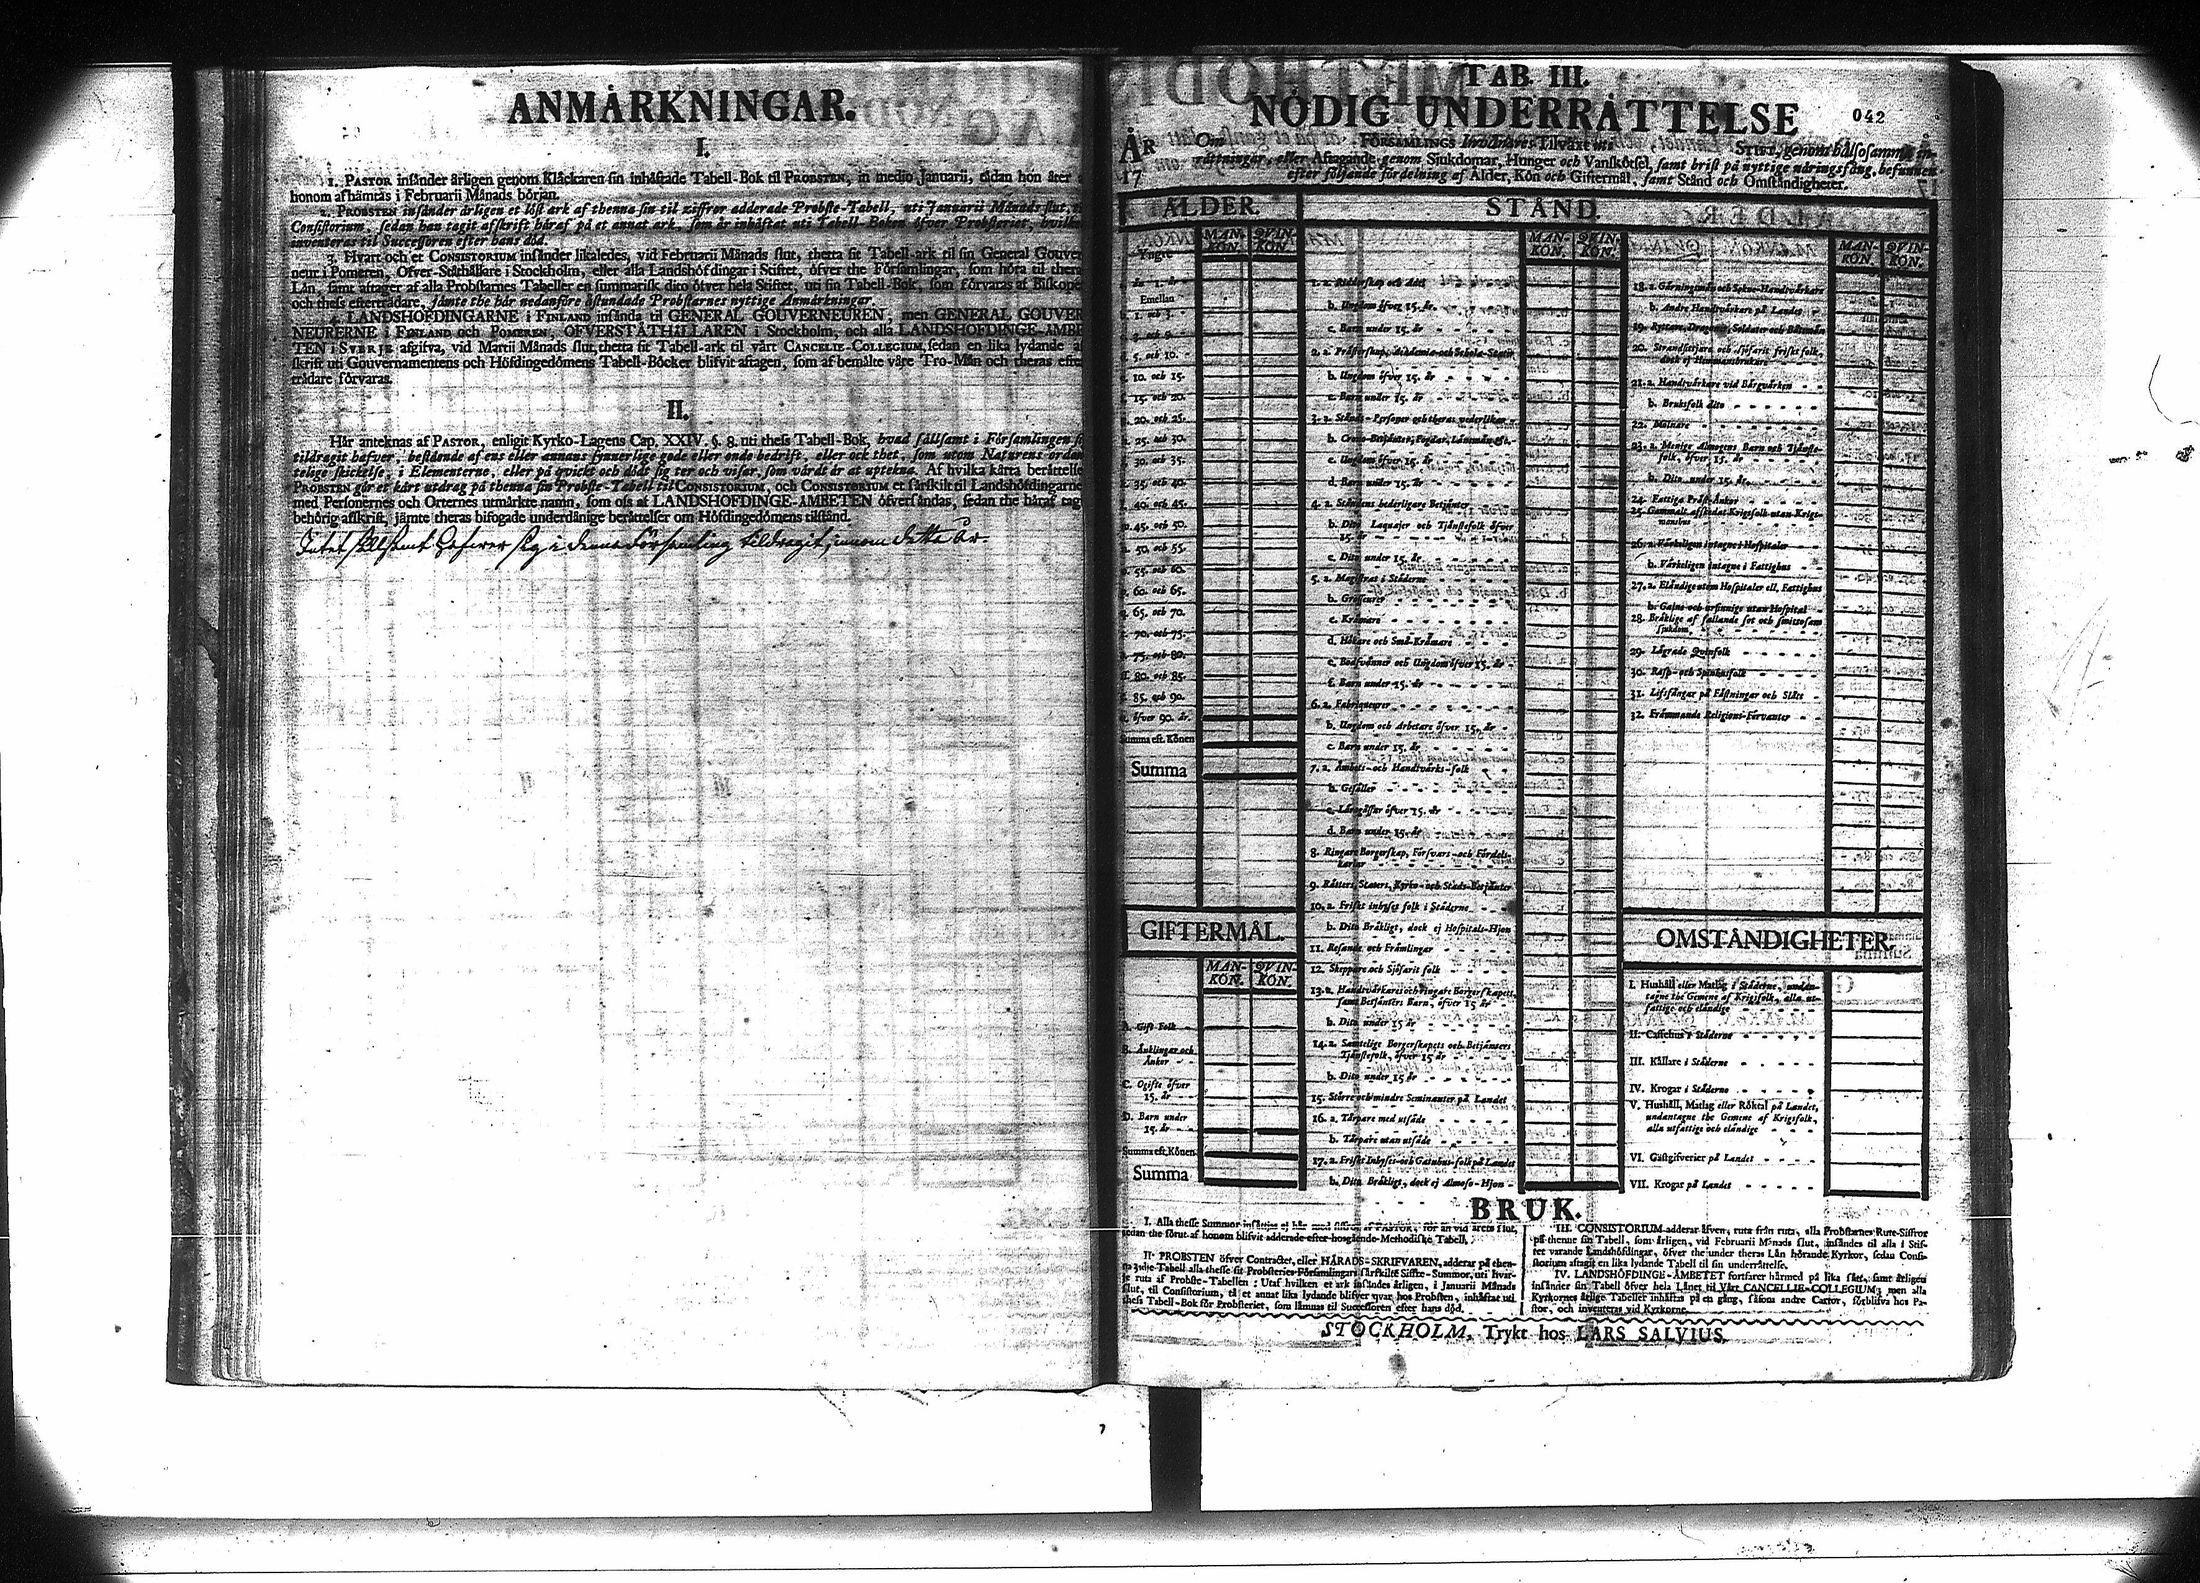 ANMÄRKNINGAR.
I.
1. PASTOR insänder årligen genom Kläckaren sin inhäftade Tabell-Bok til PROBSTEN, in medio Januarii, tädan hon åter
honom afhämtas i Februarii Månads början.
2. PROBSTEN insänder årligen et löst ark af thenna sin til ziffror adderade Probste-Tabell, uti Januarii Månads slut,
Consistorium, sedan han tagit afskrift häraf på et annat ark, som är inhäftat uti Tabell-Boken öfver Probsteriet, hvilken
inventeras til Successoren efter hans död.
3. Hvart och et CONSISTORIUM insänder likaledes, vid Februarii Månads slut, thetta sit Tabell-ark til sin General Gouver
neur i Pomeren, Öfver-Ståthållare i Stockholm, eller alla Landshöfdingar i Stiftet, öfver the Församlingar, som höra til thera
Län, samt aftager af alla Probstarnes Tabeller en summarisk dito öfver hela Stiftet, uti sin Tabell-Bok, som förvaras af Biskopen
och thess efterträdare, jämte the här nedanföre åstundade Probstarnes nyttige Anmärkningar.
4. LANDSHÖFDINGARNE i FINLAND insända til GENERAL GOUVERNEUREN, men GENERAL GOUVER
NEURERNE i FINLAND och POMEREN, ÖFVERSTÅTHÅLLAREN i Stockholm, och alla LANDSHÖFDINGE-ÄMBE
TEN i SVERJE afgifva, vid Martii Månads slut, thetta sit Tabell-ark til vårt CANCELIE-COLLEGIUM, sedan en lika lydande af
skrift uti Gouvernamentens och Höfdingedömens Tabell-Böcker blifvit aftagen, som af bemälte våre Tro-Män och theras efter
trädare förvaras.
II.
Här anteknas af PASTOR, enligit Kyrko-Lagens Cap. XXIV. §. 8. uti thess Tabell-Bok, hvad sällsamt i Församlingen
tildragit hafver, bestående af ens eller annans synnerlige gode eller onde bedrift, eller ock thet, som utom Naturens orden
telige skickelse, i Elementerne, eller på qvickt och dödt sig ter och visar, som värdt är at uptekna. Af hvilka karta berättelse
PROBSTEN gör et kårt utdrag på thenna sin Probste-Tabell til CONSISTORIUM, och CONSISTORIUM et särskilt til Landshöfdingarne
med Personernes och Orternes utmärkte namn, som oss af LANDSHÖFDINGE-ÄMBETEN öfversändas, sedan the häraf tag
behörig afskrift, jämte theras bifogade underdånige berättelser om Höfdingedömens tilstånd.
Intet sällsamt hafwer sig i denna Församling tildragit, innom detta år.
TAB. III.
NÖDIG UNDERRÄTTELSE
042
ÅR
17
Om FÖRSAMLINGS Invånares Tilväxt uti STIFT, genom hälsosamma in-
rättningar, eller Aftagande genom Siukdomar, Hunger och Vanskötsel, samt brist på nyttige näringsfång, befunnen
efter följande fördelning af Ålder, Kön och Giftermål, samt Stånd och Omständigheter.
ÅLDER.
MAN-KÖN. QVIN-KÖN.
Yngre
än 1. år
Emellan
1. och 3.
3. och 5.
5. och 10.
10. och 15.
15. och 20.
20. och 25.
25. och 30.
30. och 35.
35. och 40.
40. och 45.
45. och 50.
50. och 55.
55. och 60.
60. och 65.
65. och 70.
70. och 75.
75. och 80.
80. och 85.
85. och 90.
öfver 90. år.
Summa eft. Könen
Summa
GIFTERMÅL.
MAN-KÖN. QVIN-KÖN.
A. Gift Folk
B. Änklingar och
Änkor
C. Ogifte öfver
15. år
D. Barn under
15. år
Summa eft. Könen
Summa
STÅND.
MAN-KÖN. QVIN-KÖN.
1. a. Ridderskap och Adel
b. Ungdom öfver 15. år
c. Barn under 15. år
2. a. Prästerskap, Academie och Schole-Stater
b. Ungdom öfver 15. år
c. Barn under 15. år
3. a. Stånds-Personer och theras vederlikar
b. Crono-Betjenter, Fogdar, Länsmän &c.
c. Ungdom öfver 15. år
d. Barn under 15. år
4. a. Ståndens hederligare Betjenter
b. Dito Laquajer och Tjänstefolk öfver
15. år
c. Dito under 15. år
5. a. Magistrat i Städerne
b. Grosseurer
c. Krämare
d. Hökare och Små-Krämare
e. Bodsvänner och Ungdom öfver 15. år
f. Barn under 15. år
6. a. Fabriqueurer
b. Ungdom och Arbetare öfver 15. år
c. Barn under 15. år
7. a. Ämbets- och Handtvärks-folk
b. Gesäller
c. Lärogåssar öfver 15. år
d. Barn under 15. år
8. Ringare Borgerskap, Försvars- och Fördels-
karlar
9. Rätters, Staters, Kyrko- och Stads-Betjänter
10. a. Friskt inhyses folk i Städerne
b. Dito Bräkligt, dock ej Hospitals-Hjon
11. Resande och Främlingar
12. Skeppare och Sjöfarit folk
13. a. Handtvärkares och ringare Borgerskapets,
samt Betjänters Barn, öfver 15 år
b. Dito under 15 år
14. a. Samtelige Borgerskapets och Betjänters
Tjänstefolk, öfver 15 år
b. Dito under 15 år
15. Större och mindre Seminanter på Landet
16. a. Tårpare med utsäde
b. Tårpare utan utsäde
17. a. Friskt Inhyses- och Gatuhus-folk på Landet
b. Dito Bräkligt, dock ej Almoso-Hjon
MAN-KÖN. QVIN-KÖN.
18. a. Gärningsmän och Sokne-Handtvärkare
b. Andre Handtvärkare på Landet
19. Ryttare, Dragoner, Soldater och Båtsmän
20. Strandsittjare och sjöfarit friskt folk,
dock ej Hemmansbrukare
21. a. Handtvärkare vid Bärgvärken
b. Bruksfolk dito
22. Mölnare
23. a. Menige Almogens Barn och Tjänste-
folk, öfver 15. år
b. Dito under 15. år
24. Fattiga Präst-Änkor
25. Gammalt afskedat Krigsfolk utan Krigs-
manshus
26. a. Värkeligen intagne i Hospitaler
b. Värkeligen intagne i Fattighus
27. a. Eländige utom Hospitaler ell. Fattighus
b. Galne och ursinnige utan Hospital
28. Bräklige af fallande sot och smittosam
sjukdom
29. Lägrade Qvinfolk
30. Rasp- och Spinhusfolk
31. Lifsfångar på Fästningar och Slått
32. Främmande Religions-Förvanter
OMSTÄNDIGHETER.
I. Hushåll eller Matlag i Städerne, undan-
tagne the Gemene af Krigsfolk, alla ut-
fattige och eländige
II. Caffehus i Städerne
III. Källare i Städerne
IV. Krogar i Städerne
V. Hushåll, Matlag eller Röktal på Landet,
undantagne the Gemene af Krigsfolk,
alla utfattige och eländige
VI. Gästgifverier på Landet
VII. Krogar på Landet
BRUK.
I. Alla thesse Summor insättjas ej här med siffror af PASTOR, för än vid årets slut,
sedan the förut af honom blifvit adderade efter hosgående Methodiske Tabell.
II. PROBSTEN öfver Contractet, eller HÄRADS-SKRIFVAREN, adderar på then-
na 3dje Tabell alla thesse sit Probsteries Församlingars särskilte Siffre-Summor, uti hvar-
je ruta af Probste-Tabellen: Utaf hvilken et ark insändes årligen, i Januarii Månads
slut, til Consistorium, til et annat lika lydande blifver qvar hos Probsten, inhäftat uti
thess Tabell-Bok för Probsteriet, som lämnas til Successoren efter hans död.
III. CONSISTORIUM adderar äfven, ruta från ruta, alla Probstarnes Rute-Siffror
på thenne sin Tabell, som årligen, vid Februarii Månads slut, insändes til alla i Stif-
tet varande Landshöfdingar, öfver the under theras Län hörande Kyrkor, sedan Consi-
storium aftagit en lika lydande Tabell til sin underrättelse.
IV. LANDSHÖFDINGE-ÄMBETET fortfarer härmed på lika sätt, samt årligen
insänder sin Tabell öfver hela Länet til Vårt CANCELLIE-COLLEGIUM; men alla
Kyrkornes årlige Tabeller inhäftas på en gång, såsom andre Cartor, förblifva hos Pa-
stor, och inventeras vid Kyrkorne.
STOCKHOLM, Trykt hos LARS SALVIUS.